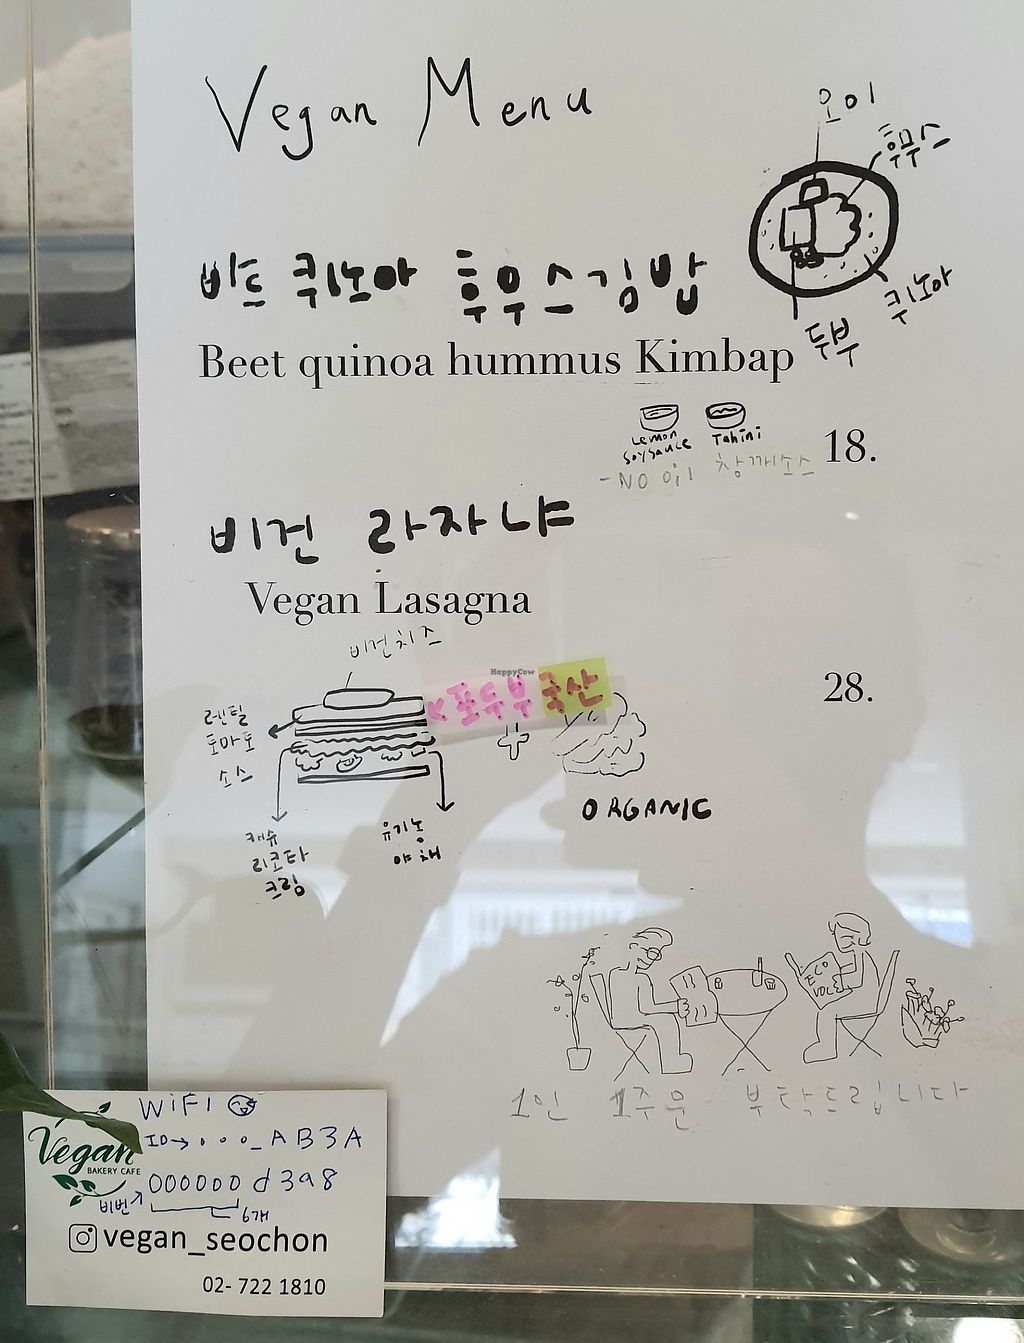 Vegan Menu
오이
후무스
퀴노아
두부
비트 퀴노아 후무스김밥
Beet quinoa hummus Kimbap
Lemon Soysauce
Tahini
18.
-NO oil 참깨소스
비건 라자냐
Vegan Lasagna
비건치즈
HappyCow
포두부 국산
28.
렌틸
토마토
소스
+
ORGANIC
캐슈
리코타
크림
유기농
야채
ECO
VOL
1인 1주문 부탁드립니다
WiFi
ID→ . . . _AB3A
Vegan
BAKERY CAFE
000000d3a8
비번
6개
vegan_seochon
02- 722 1810